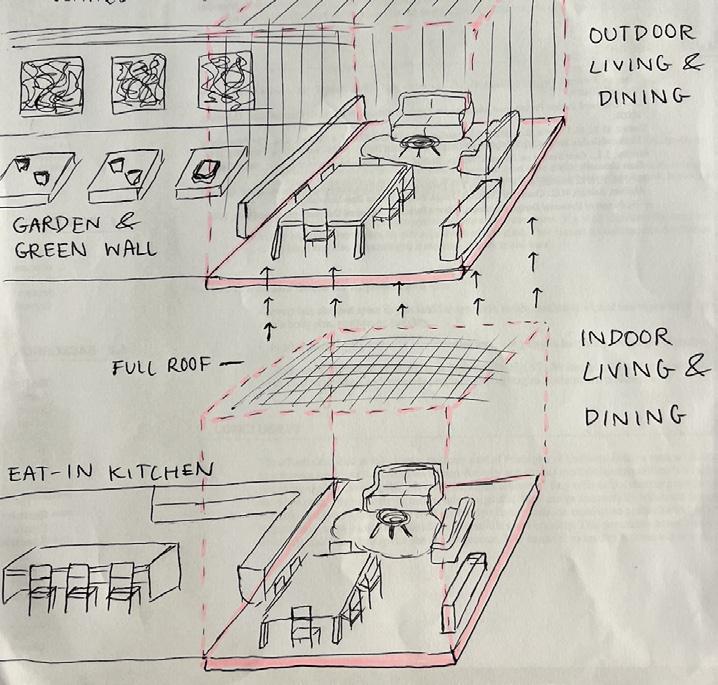 OUTDOOR
LIVING &
DINING
GARDEN &
GREEN WALL
FULL ROOF –
INDOOR
LIVING &
DINING
EAT-IN KITCHEN